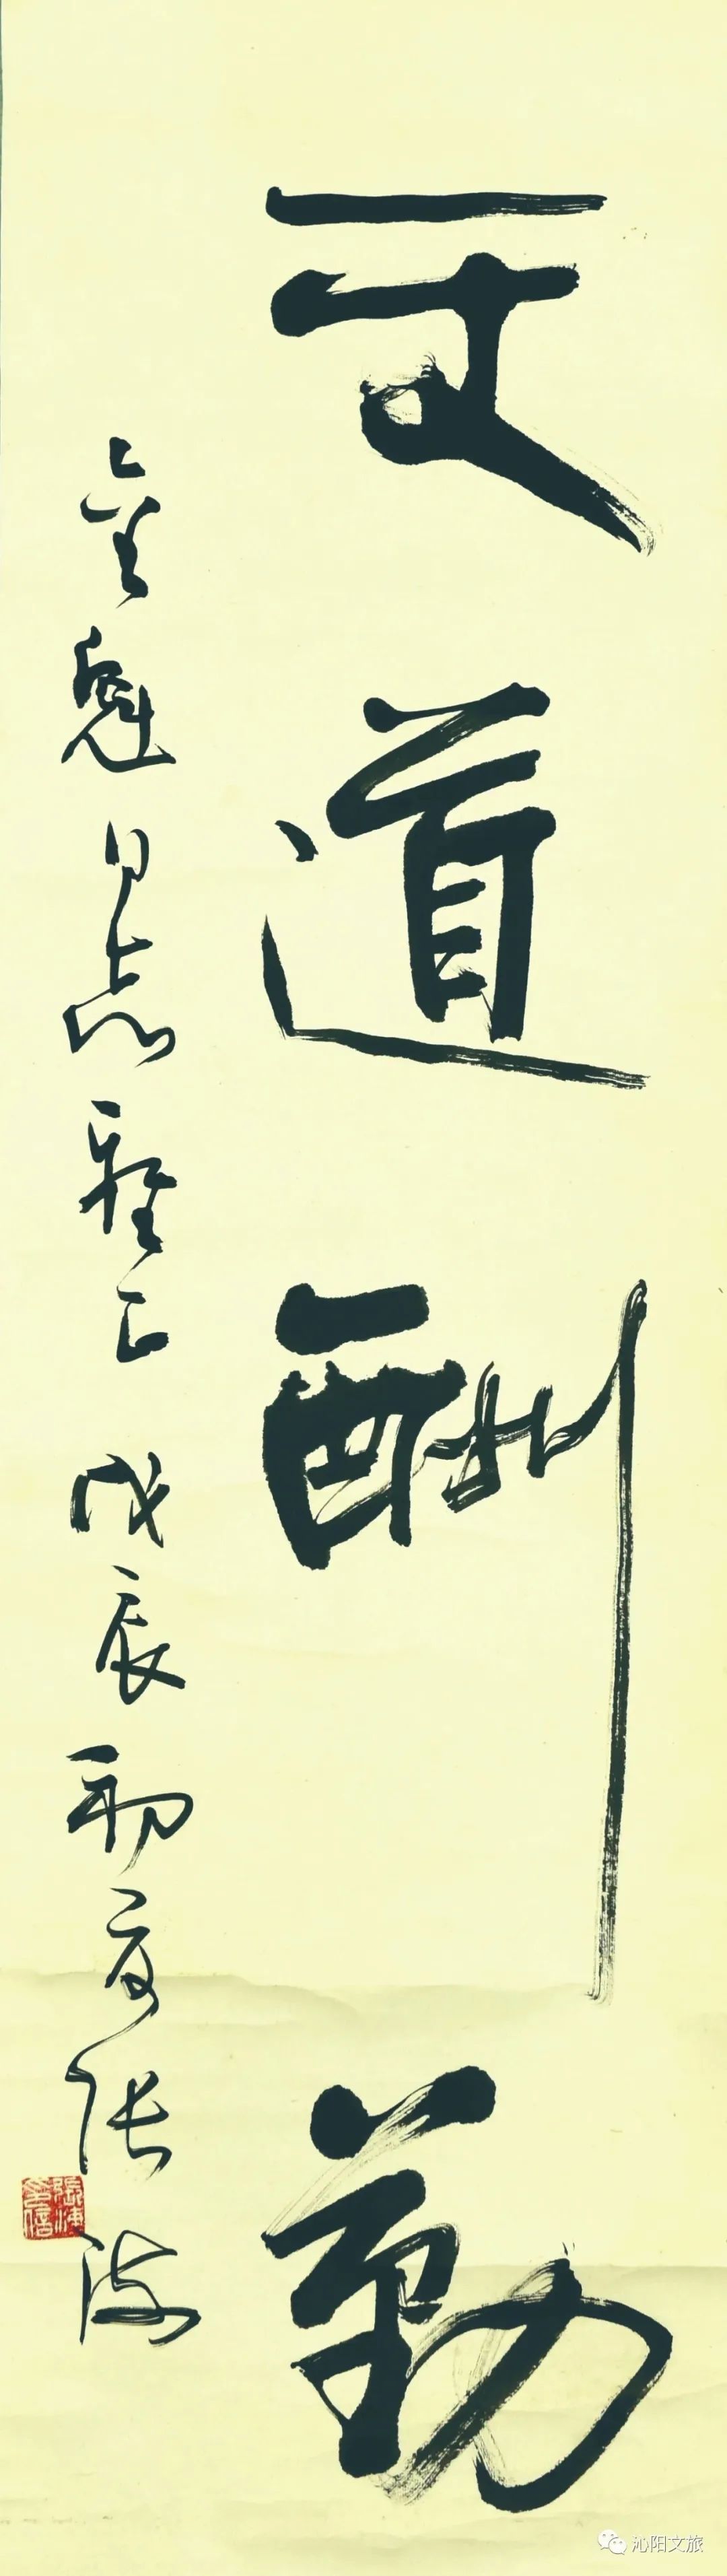 天道酬勤
金魁同志雅正 戊辰初夏 张海
張海之信
沁阳文旅